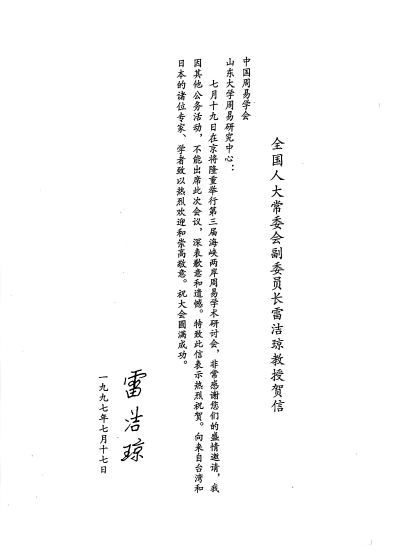 全国人大常委会副委员长雷洁琼教授贺信
中国周易学会
山东大学周易研究中心：
七月十九日在京将隆重举行第三届海峡两岸周易学术研讨会，非常感谢您们的盛情邀请，我
因其他公务活动，不能出席此次会议，深表歉意和遗憾。特致此信表示热烈祝贺。向来自台湾和
日本的诸位专家、学者致以热烈欢迎和崇高敬意。祝大会圆满成功。
雷洁琼
一九九七年七月十七日